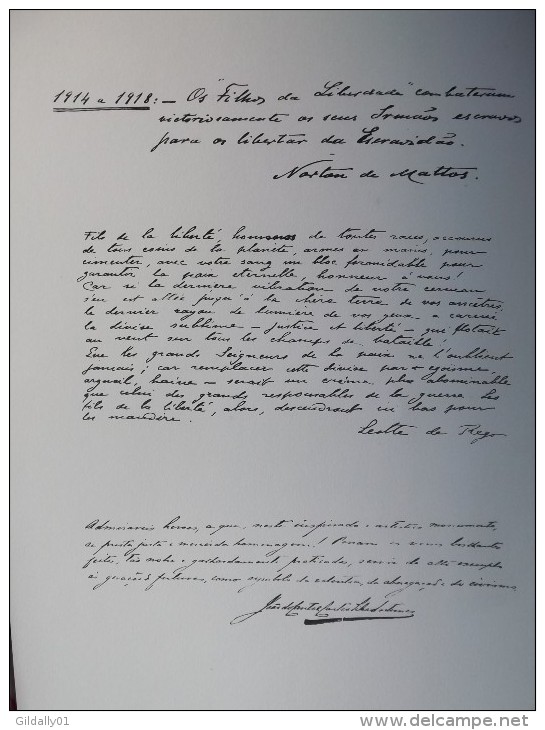 1914 a 1918: — Os "Filhos da Liberdade" combateram
victoriosamente os seus Irmãos escravos
para os libertar da Escravidão.
Norton de Mattos.
Fils de la liberté, hommes de toutes races, accourus
de tous coins de la planète, armes en mains, pour
cimenter, avec votre sang un bloc formidable pour
garantir la paix eternelle, honneur à vous!
Car si la dernière vibration de votre cerveau
s'en est allée jusqu'à la chère terre de vos ancêtres,
le dernier rayon de lumière de vos yeux a caressé
la divise sublime — justice et liberté — que flotait
au vent sur tous les champs de bataille!
Que les grands Seigneurs de la paix ne l'oublient
jamais; car remplacer cette divise par — egoisme,
orgueil, haine — serait un crime plus abominable
que celui des grands responsables de la guerre. Les
fils de la liberté, alors, descendront en bas pour
les maudire.
Leotte do Rego
Admiraveis heroes, a que, neste inspirado e artistico monumento,
se presta justa e merecida homenagem! Possam os seus brilhantes
feitos, tão nobre e galhardamente praticados, servir de alto exemplo
ás gerações futuras, como symbolo de valentia, de abnegação e de civismo.
Gildally01
www.delcampe.net